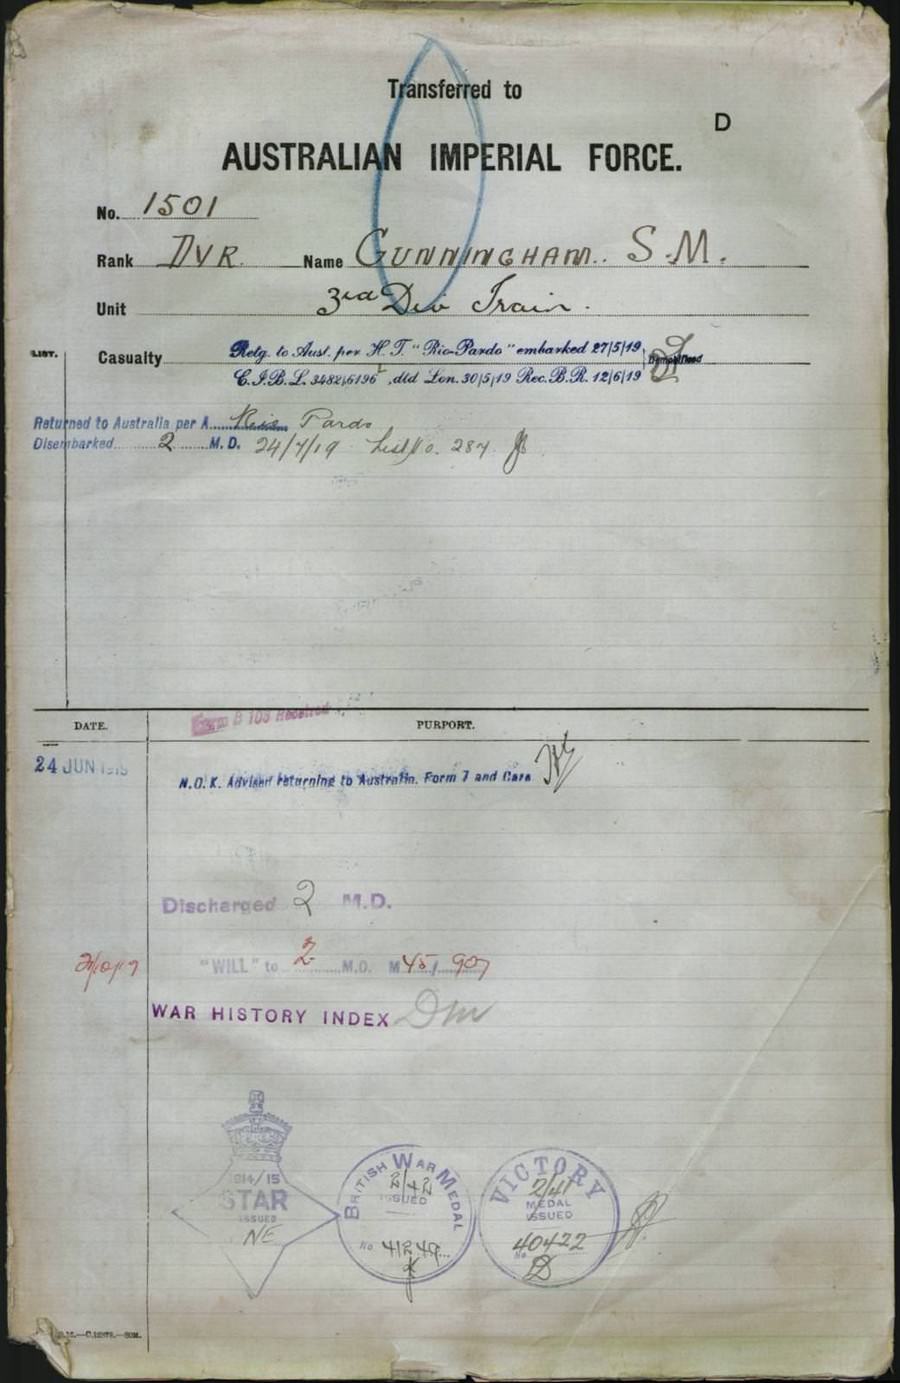 Transferred to
D
AUSTRALIAN IMPERIAL FORCE.
No. 1501
Rank DVR. Name CUNNINGHAM. S.M.
Unit 3rd Div Train.
LIST.
Casualty Retg. to Aust. per H.T. "Rio-Pardo" embarked 27/5/19
C.I.B.L. 3482/6196, dtd Lon. 30/5/19 Rec. B.R. 12/6/19
Returned to Australia per A Rio Pardo
Disembarked 2 M.D. 24/7/19 List No. 287.
Form B 103 Received
DATE. PURPORT.
24 JUN 1919
N.O.K. Advised returning to Australia. Form 7 and Card
Discharged 2 M.D.
"WILL" to 2 M.D. M 45/907
WAR HISTORY INDEX
1914/15
STAR
ISSUED
NE
BRITISH WAR MEDAL
2/42
ISSUED
No 41249
VICTORY
2/41
MEDAL
ISSUED
No 40422